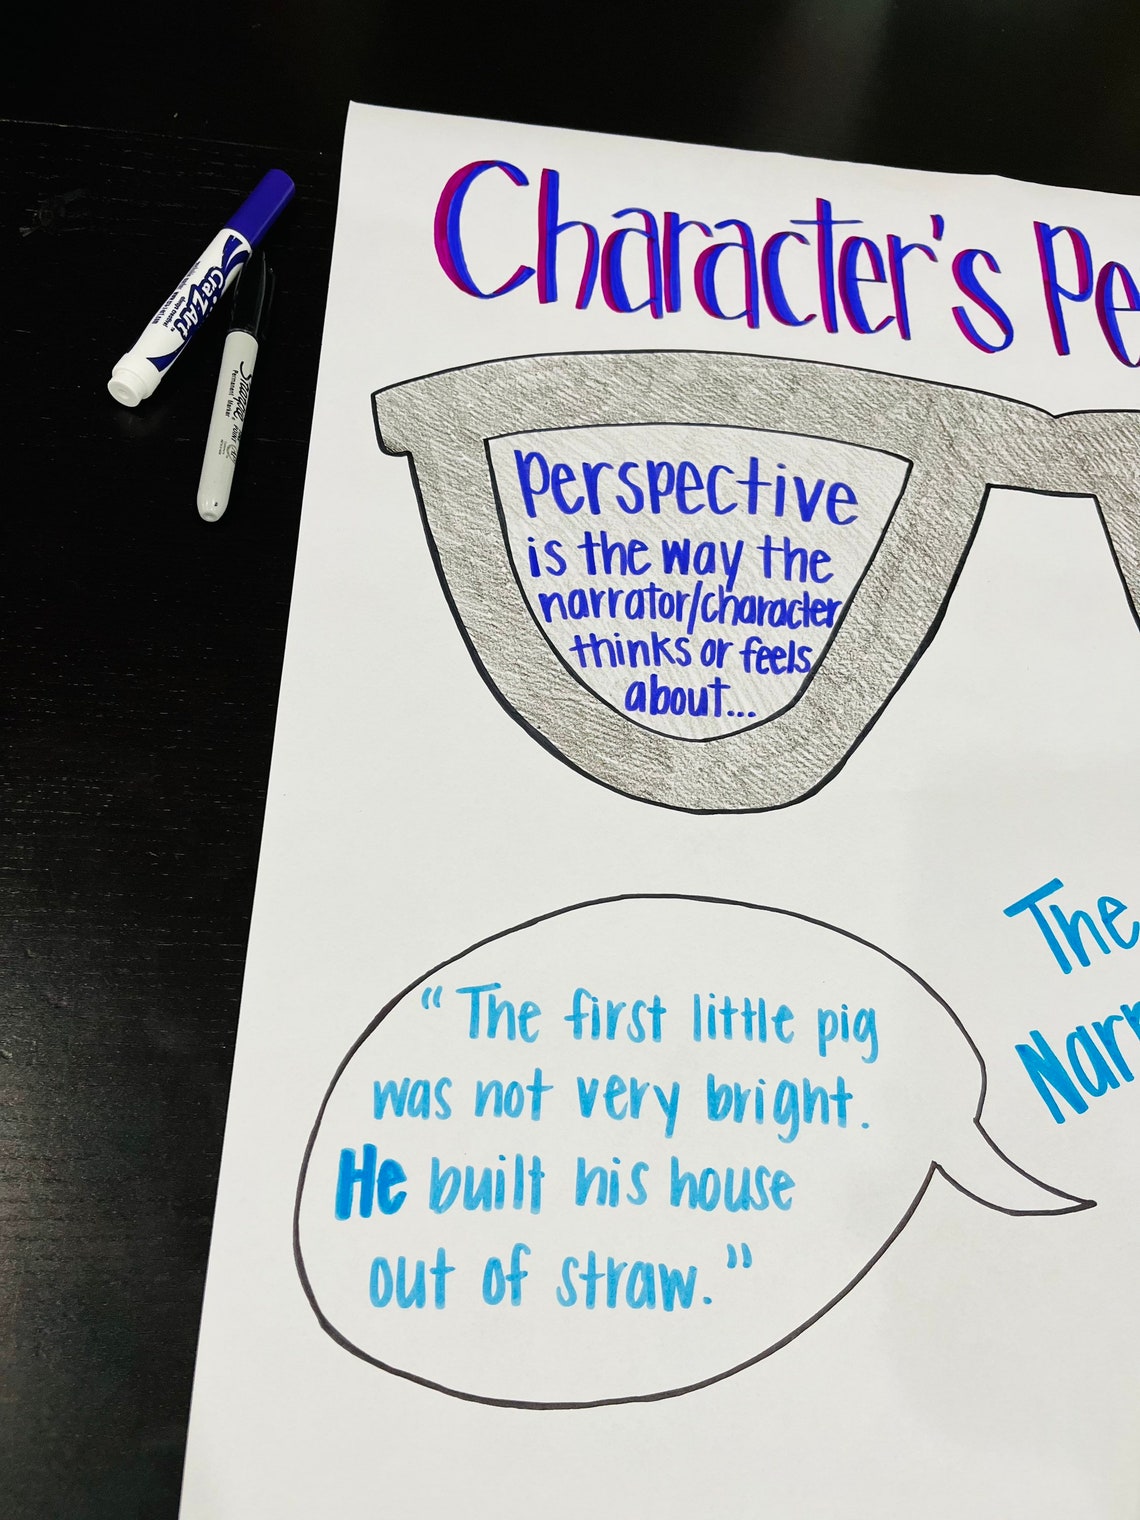 Character's Pe
perspective
is the way the
narrator/character
thinks or feels
about...
The
Narr
"The first little pig
was not very bright.
He built his house
out of straw."
CraZArt
Sharpie
Permanent Marker